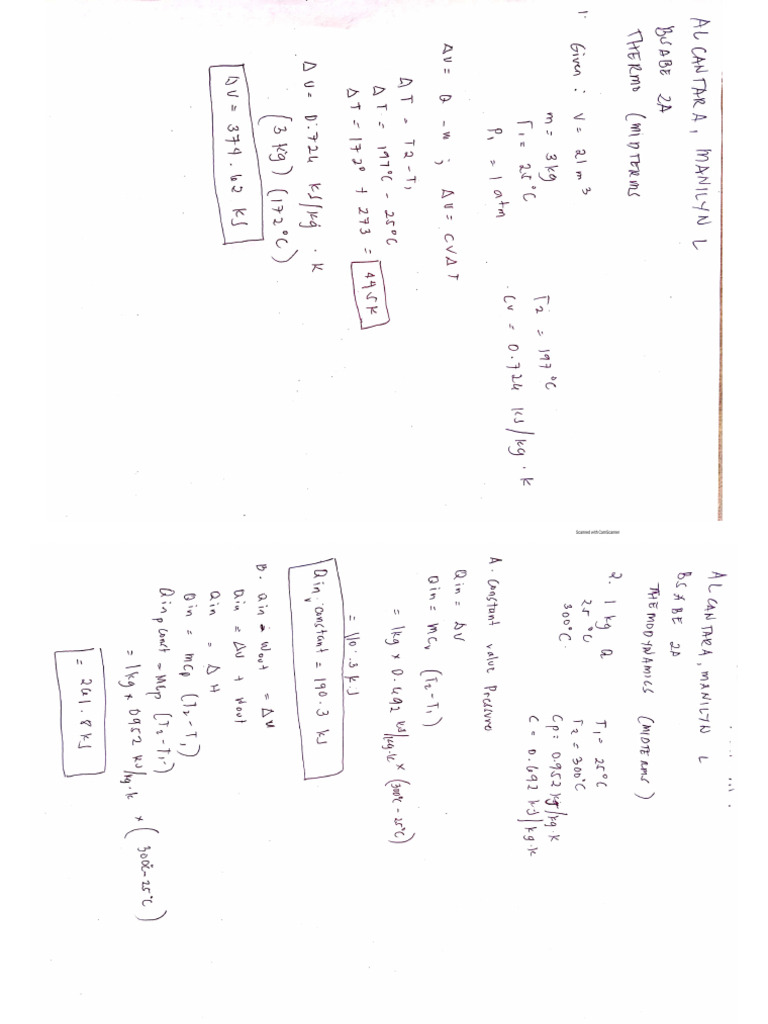 ALCANTARA, MANILYN L
BSABE 2A
THERMO (MIDTERMS
1. Given : V = 21 m³
m = 3kg
T₁ = 25°C
P₁ = 1 atm
T2 = 197°C
CV = 0.724 KJ/kg · K
ΔU = Q - W ; ΔU = CVΔT
ΔT = T2 - T₁
ΔT = 197°C - 25°C
ΔT = 172° + 273 = 445K
ΔU = 0.724 KJ/kg · K
(3kg) (172°C)
ΔU = 374.62 KJ
Scanned with CamScanner
ALCANTARA, MANILYN L
BSABE 2A
THEMODYNAMICS (MIDTERMS)
2. 1 kg
25°C
300°C.
T₁ = 25°C
T2 = 300°C
Cp: 0.952 kJ/kg·K
C = 0.692 kJ/kg·K
A. constant value Pressure
Qin = ΔU
Qin = mCv (T2-T₁)
= 1kg x 0.692 KJ/kg·K x (300°C - 25°C)
= 110.3 KJ
Qin, v constant = 190.3 KJ
B. Qin - Wout = ΔU
Qin = ΔU + Wout
Qin = ΔH
Qin = mCp (T2 - T₁)
Qinp const = MCp (T2 - T₁)
= 1kg x 0952 KJ/kg·K x (300°C-25°C)
= 261.8 KJ